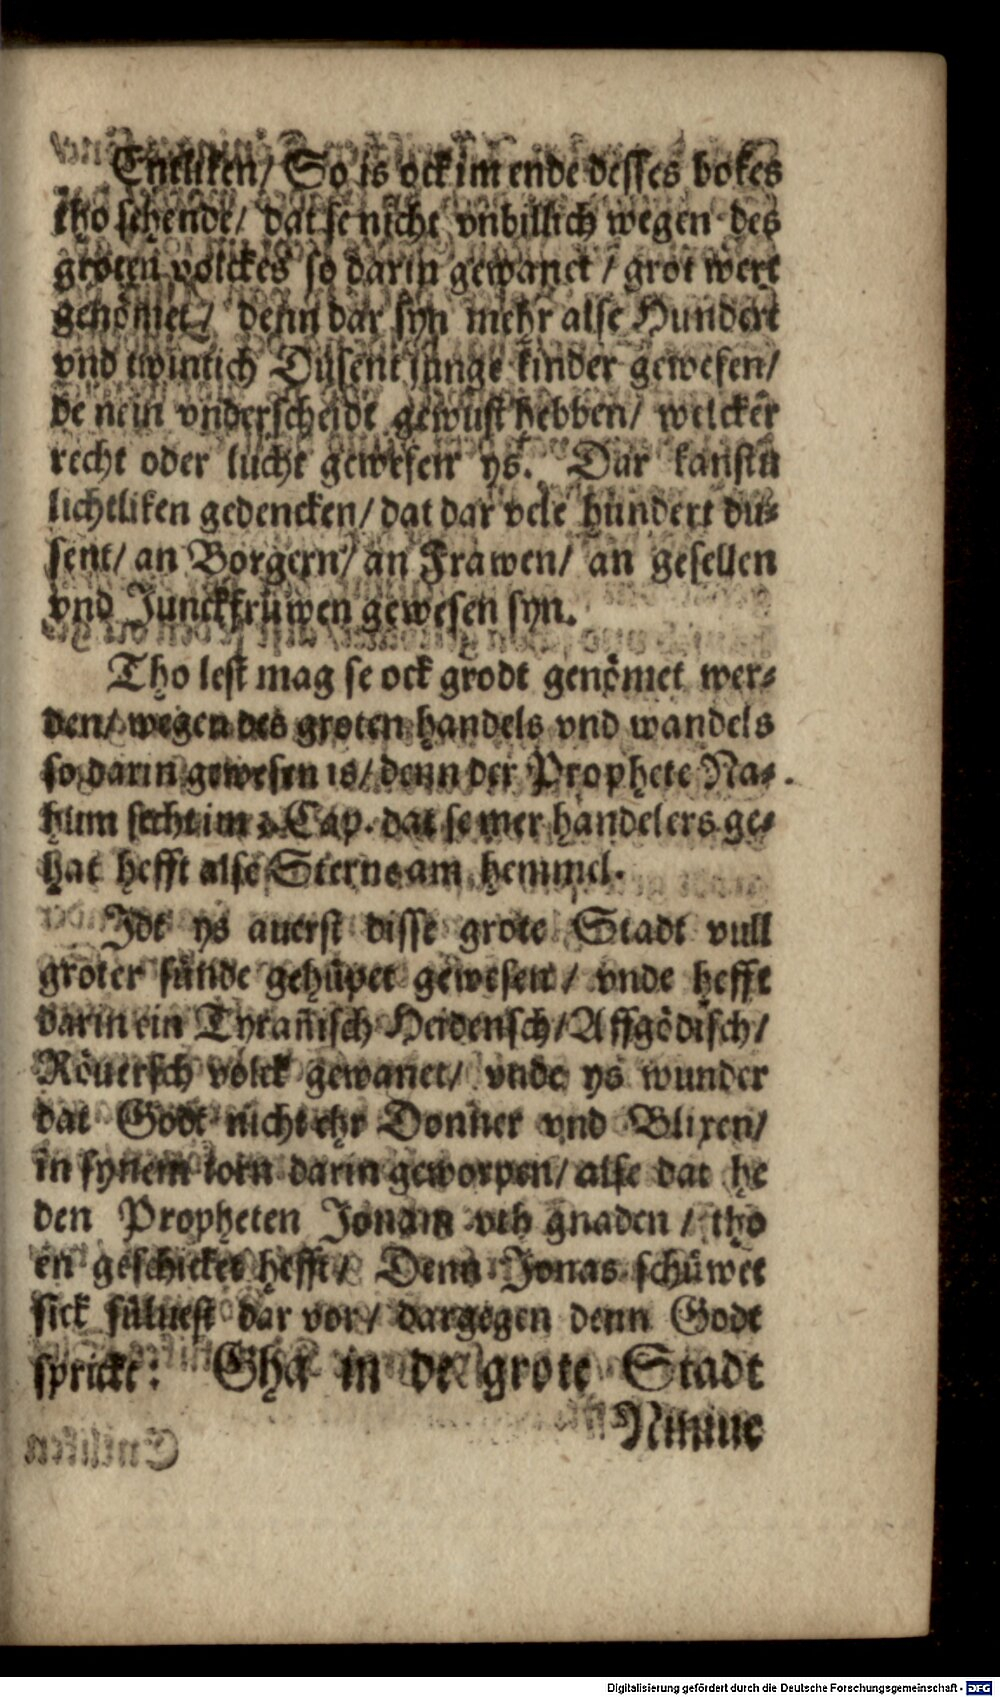 Entliken/ So is ock im ende desses bokes
tho sehende/ dat se nicht vnbillich wegen des
groten volckes so darin gewanet / grot wert
genömet/ denn dar syn mehr alse Hundert
vnd twintich Dusent junge kinder gewesen/
de nein vnderscheidt gewust hebben/ welcker
recht oder lucht gewesen ys. Dar kanstu
lichtliken gedencken/ dat dar vele hundert du⸗
sent/ an Borgern/ an Frawen/ an gesellen
vnd Junckfruwen gewesen syn.
Tho lest mag se ock grodt genömet wer⸗
den/ wegen des groten handels vnd wandels
so darin gewesen is/ denn der Prophete Na⸗
hum secht im 3. Cap. dat se mer handelers ge⸗
hat hefft alse Sterne am hemmel.
Idt ys auerst disse grote Stadt vull
groter sünde gehüpet gewesen / vnde hefft
darin ein Tyrañisch Heidensch/ Affgödisch/
Röuersch volck gewanet/ vnde ys wunder
dat Godt nicht ehr Donner vnd Blixen/
in synem torn darin geworpen/ alse dat he
den Propheten Jonam vth gnaden / tho
en geschicket hefft/ Denn Jonas schüwet
sick süluest dar vor/ dargegen denn Godt
sprickt: Gha in de grote Stadt
Niniue
Digitalisierung gefördert durch die Deutsche Forschungsgemeinschaft - DFG